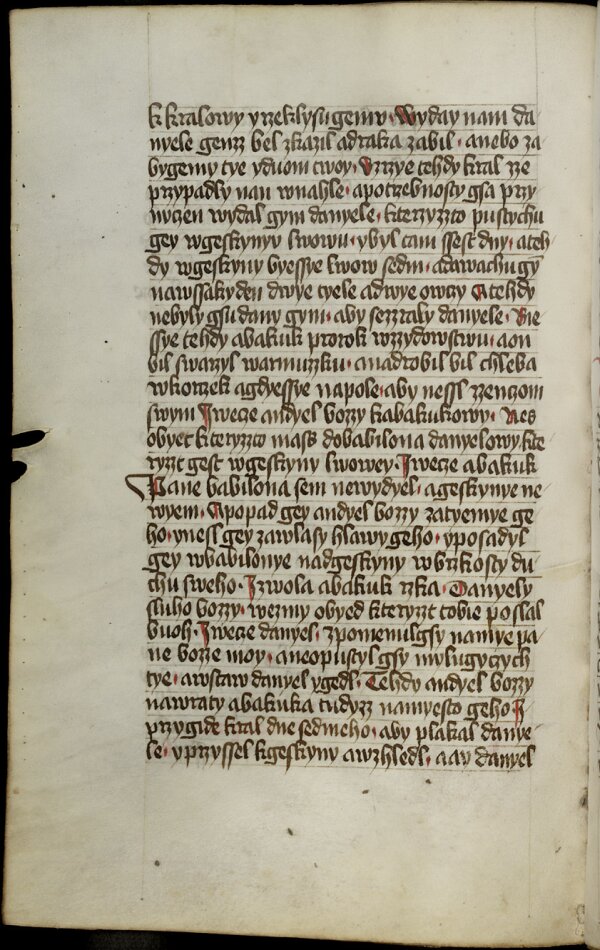 k kralowy y rzekly su gemu · Wyday nam da
nyele genz bel zkazil a draka zabil · anebo za
bygemy tye y duom twoy · Vzrzye tehdy kral ze
przypadly nan w nahle · a potrzebnosty gsa przy
nucen wydal gym danyele · kteryzzto pustychu
gey w geskynyu lwowu · y byl tam ssest dny · a teh
dy w geskyny byessye lwow sedm · a dawachu gy
na wssaky den dwye tyele a dwye owczy A tehdy
nebyly gsu dany gym · aby sezzraly danyele · Bie
ssye tehdy abakuk prorok w zydowstwu · a on
bil swarzyl warmuzku · a nadrobil bil chleba
w korzek a gdyessye na pole · aby nessl zzenczom
swym I wecze andyel bozzy k abakukowy · Nes
obyet kteryzto mass do babilona danyelowy kte
ryzt gest w geskyny lwowey · I wecze abakuk
Pane babilona sem newydyel · a geskynye ne
wyem · A popad gey andyel bozzy za tyemye ge
ho · y nesl gey za wlasy hlawy geho · y posadyl
gey w babilonye nad geskyny w brzkosty du
chu sweho · I zwola abakuk rzka · Danyely
sluho bozzy · wezmy obyed kteryzt tobie poslal
buoh · I wecze danyel · zpomenul gsy na mye pa
ne bozze moy · a neopustyl gsy mylugyczych
tye · a wstaw danyel y gedl · Tehdy andyel bozzy
nawraty abakuka tudyzz na myesto geho I
przygide kral dne sedmeho · aby plakal danye
le · y przyssel k geskyny a wzhledl · a ay danyel